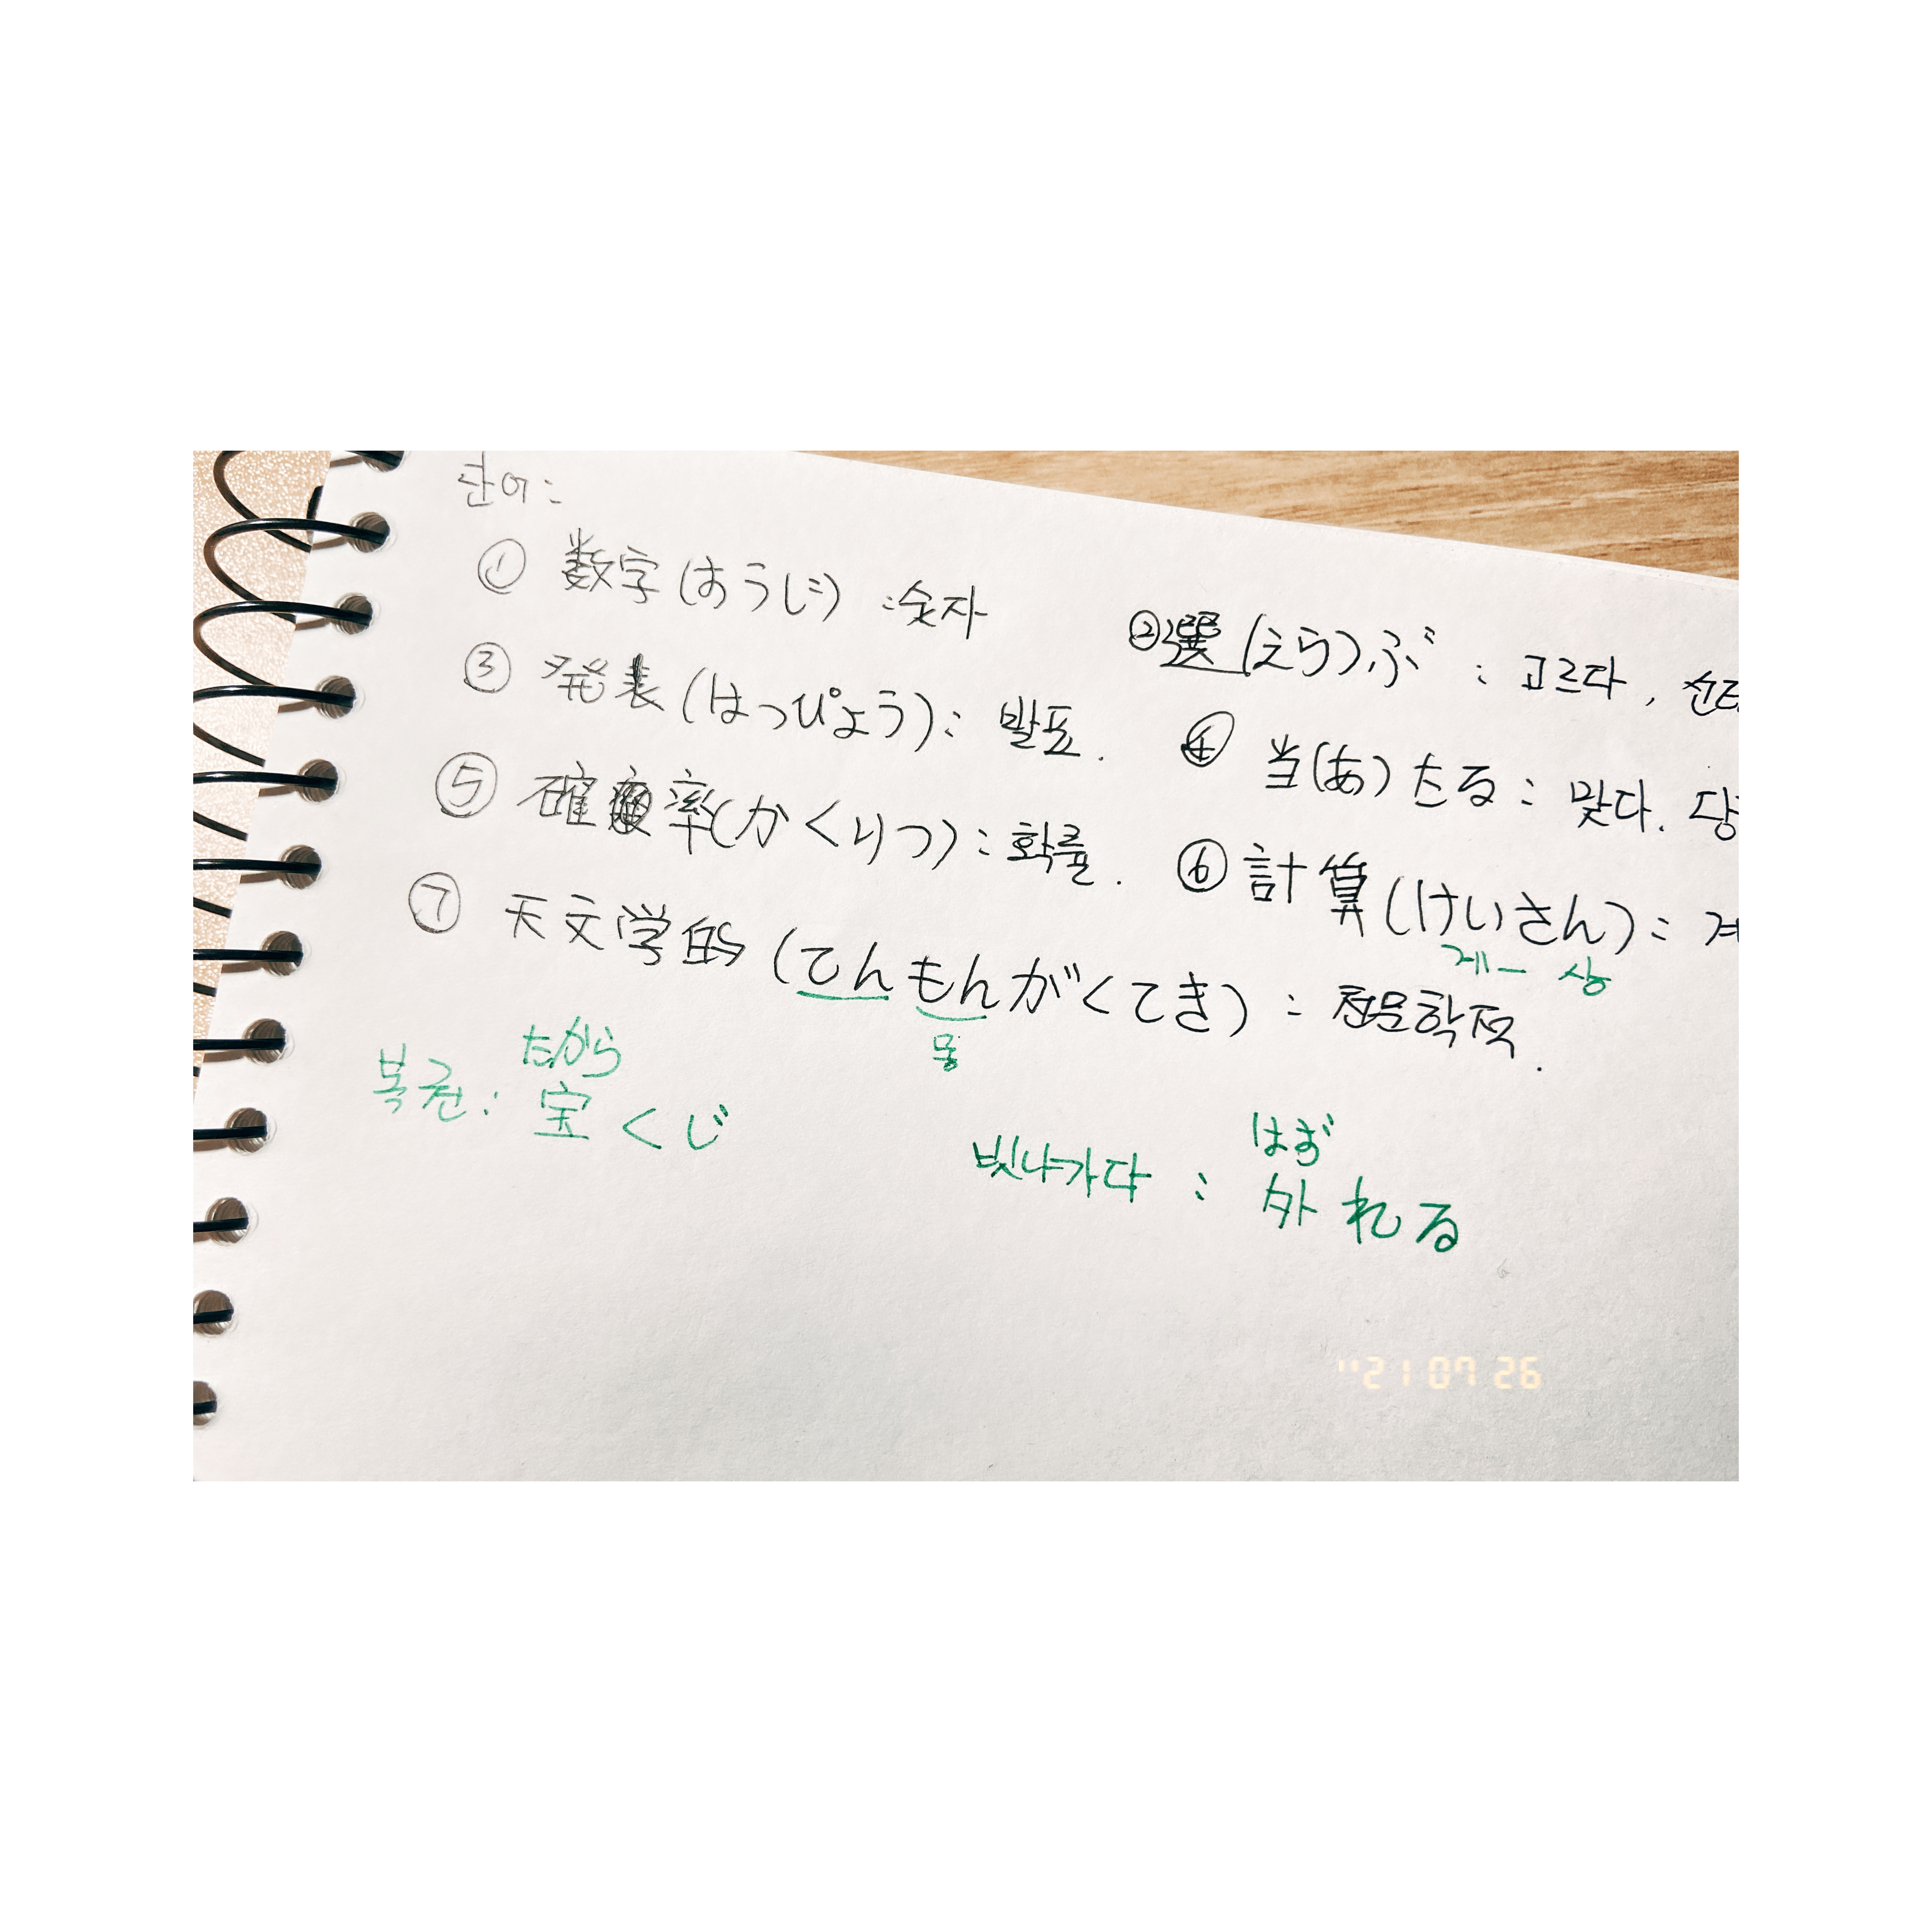 단어:
① 数字(すうじ) : 숫자
② 選(えら)ぶ : 고르다, 선
③ 発表(はっぴょう): 발표.
④ 当(あ)たる: 맞다. 당
⑤ 確率(かくりつ): 확률.
⑥ 計算(けいさん): 계
게ー 상
⑦ 天文学的 (てんもんがくてき) : 천문학적.
몽
たから
복권: 宝くじ
はず
빗나가다 : 外れる
'21 07 26